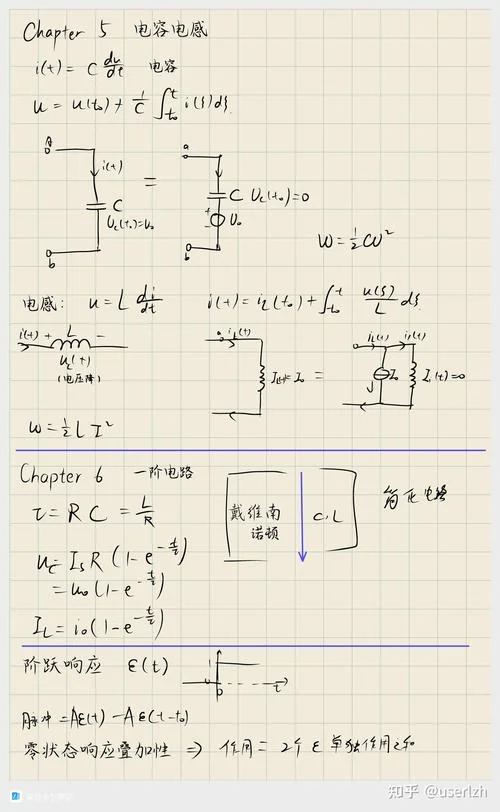 Chapter 5 电容电感
i(t) = C du/dt 电容
u = u(t₀) + 1/C ∫ₜ₀ᵗ i(ξ)dξ
a
i(t)
C
U_c(t₀)=U₀
b
=
a
C U_c(t₀)=0
+
U₀
-
b
W = ½CU²
电感: u = L di/dt i(t) = i_L(t₀) + ∫ₜ₀ᵗ u(ξ)/L dξ
i(t) + L -
u_L(t)
(电压降)
i_L(t)
= I₀
=
i_L(t) i₁(t)
I₀
I₁(t)=0
W = ½LI²
Chapter 6 一阶电路
τ = RC = L/R
戴维南
诺顿
C, L
简化电路
u_c = I_s R (1 - e^(-t/τ))
= u₀ (1 - e^(-t/τ))
I_L = i₀ (1 - e^(-t/τ))
阶跃响应 ε(t)
1
0
t
脉冲 = Aε(t) - Aε(t-t₀)
零状态响应叠加性 ⇒ 作用 = 2个ε单独作用之和
知乎 @userlzh